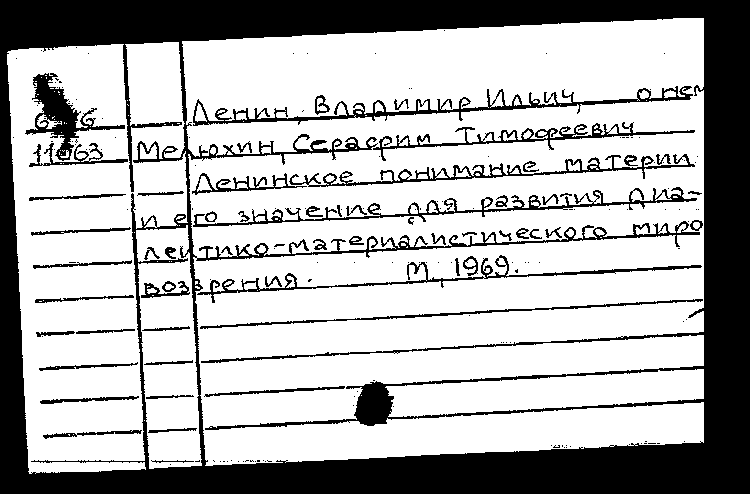 Ленин, Владимир Ильич, о нем
11063 Мелюхин, Серафим Тимофеевич
Ленинское понимание материи
и его значение для развития диа-
лектико-материалистического миро
воззрения. М, 1969.